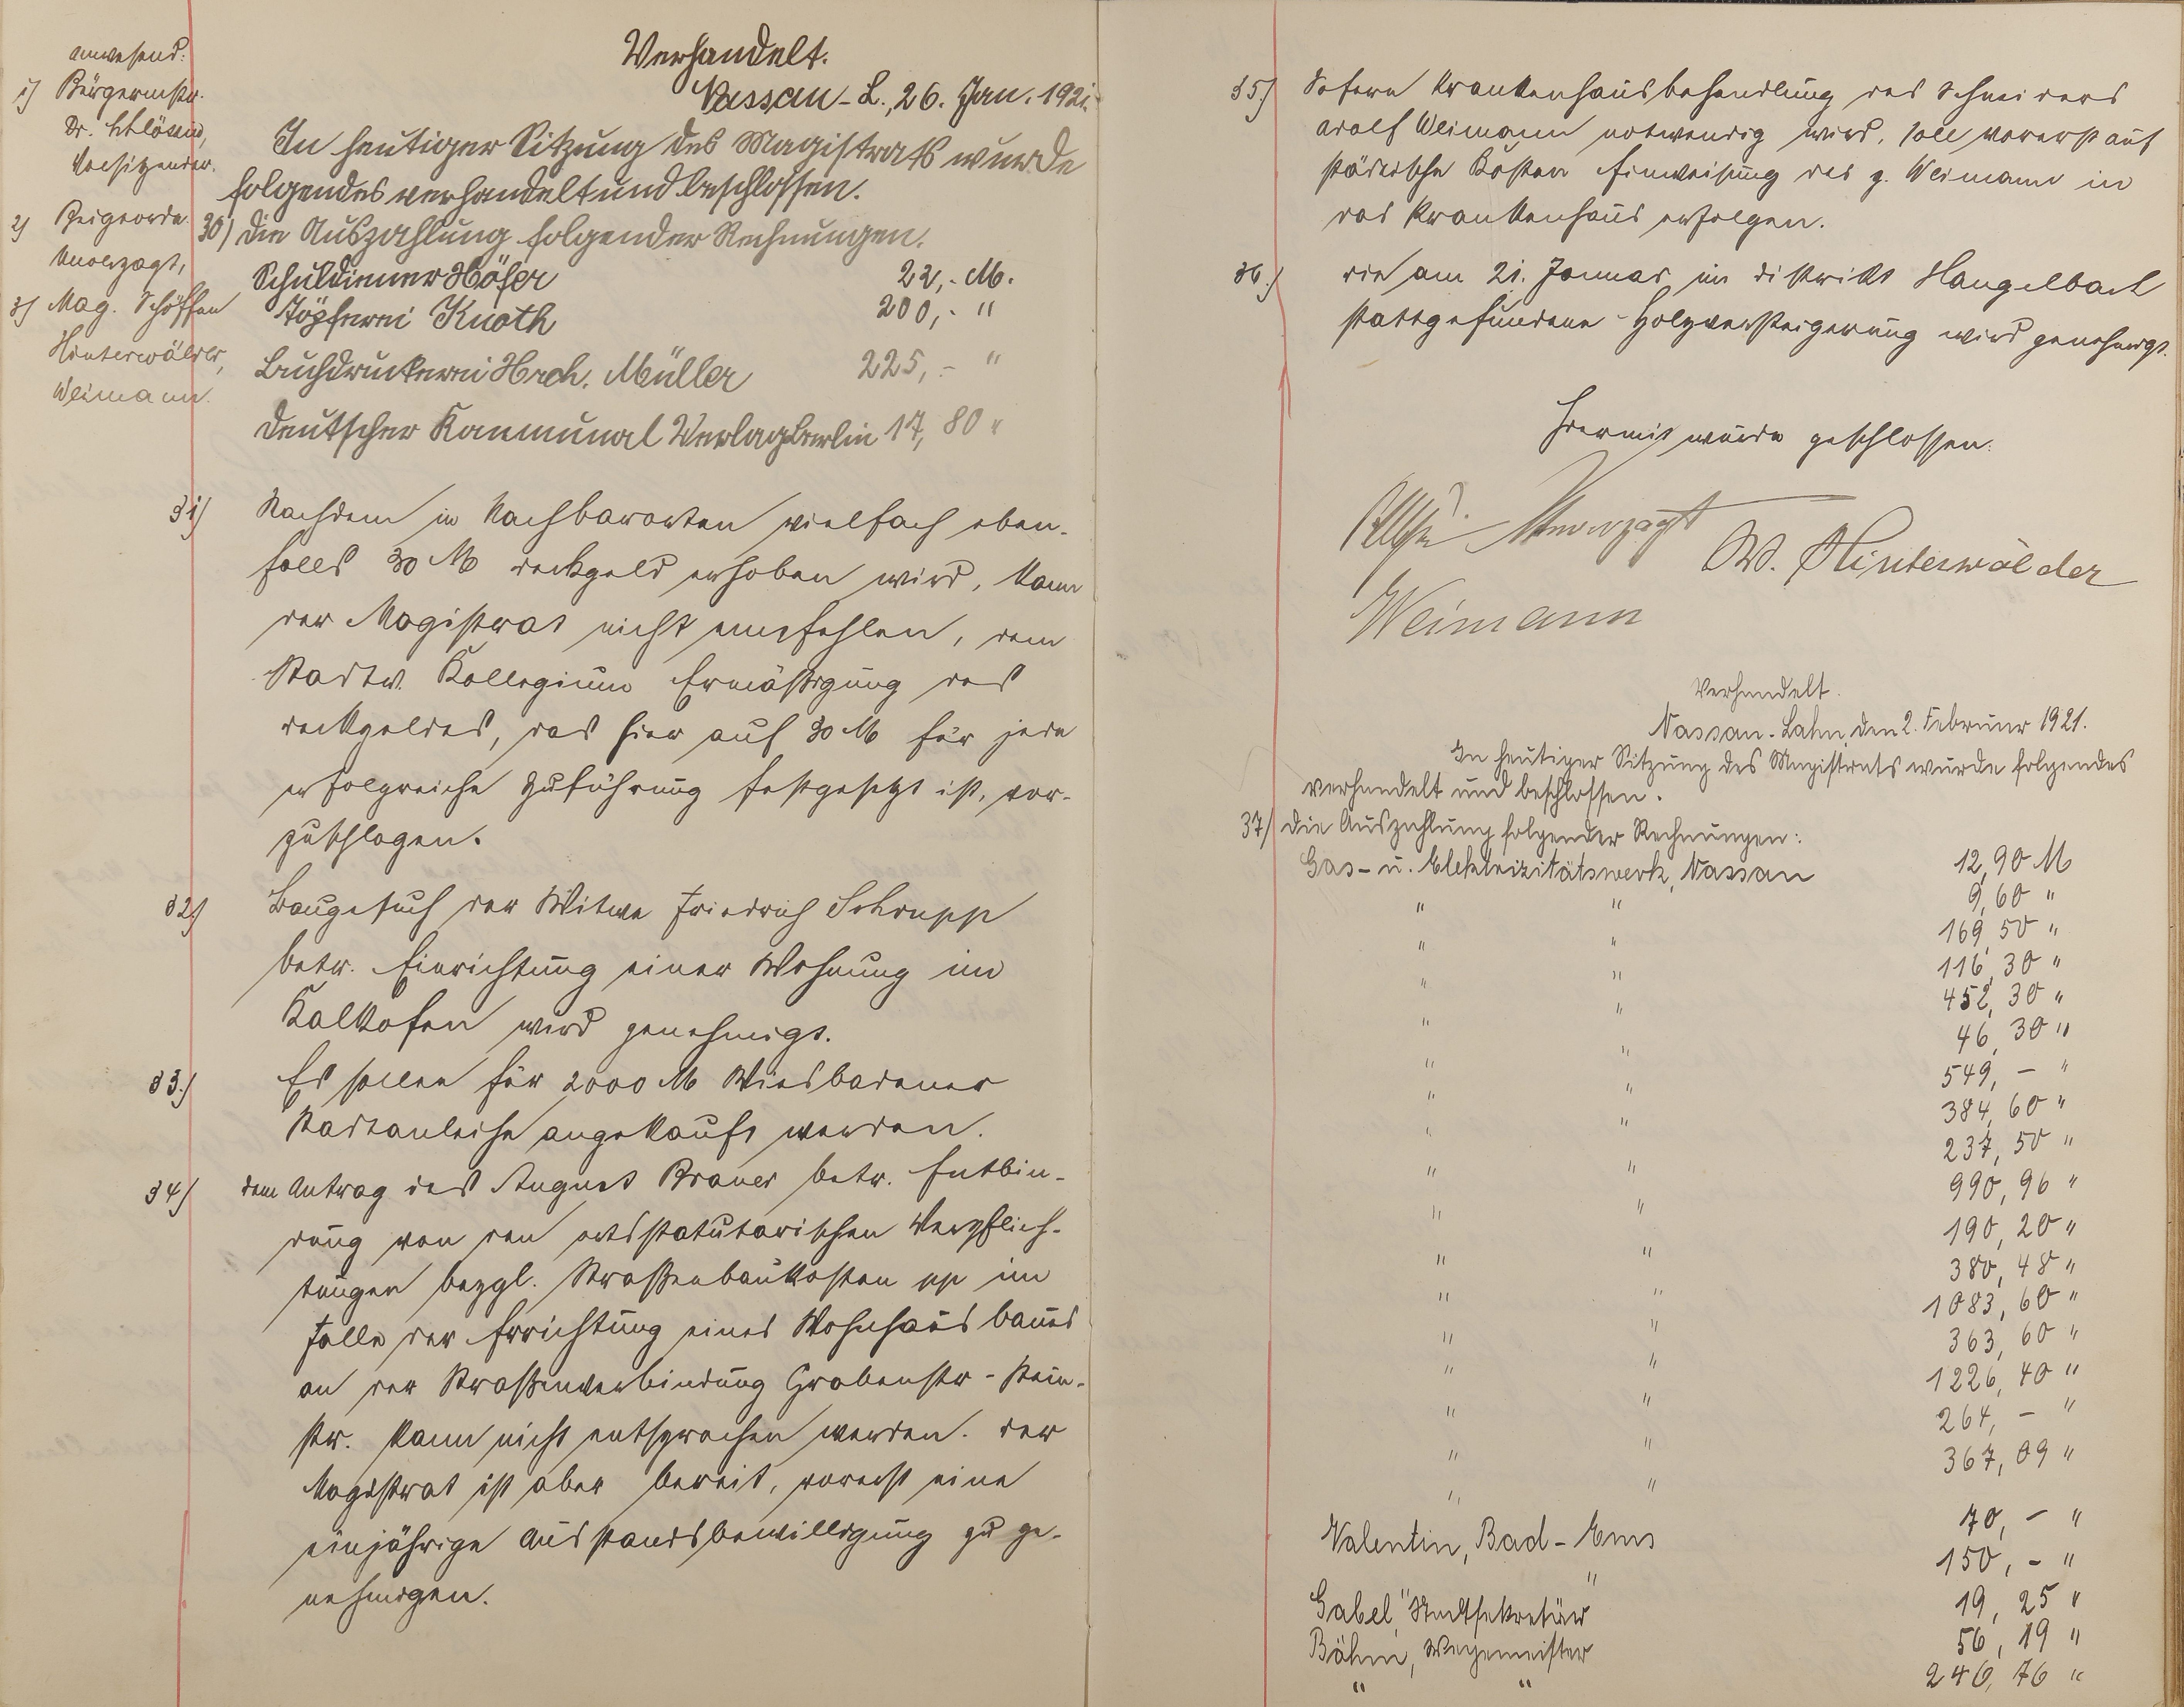 anwesend:
1) Bürgermstr.
Dr.
Vorsitzender.
2) Beigeordn.
Unverzagt,
3) Mag. Schöffen
Hinterwälder,
Weimann.
Verhandelt.
Nassau-L., 26. Jan. 1921.
In heutiger Sitzung des Magistrats wurde
folgendes verhandelt und beschlossen.
30) Die Auszahlung folgender Rechnungen.
Schuldiener Höfer 22,- M.
Töpferei Knoth 200,- "
Buchdruckerei Hrch. Müller 225,- "
Deutscher Kommunal Verlag Berlin 17,80 "
31) Nachdem in Nachbarorten vielfach eben-
falls 30 M Deckgeld erhoben wird, kann
der Magistrat nicht empfehlen, dem
Stadtv. Kollegium Ermäßigung des
Deckgeldes, das hier auf 30 M für jede
erfolgreiche Zuführung festgesetzt ist, vor-
zuschlagen.
32) Baugesuch der Witwe Friedrich Schrupp
betr. Einrichtung einer Wohnung im
Kalkofen wird genehmigt.
33.) Es sollen für 2000 M Wiesbadener
Stadtanleihe angekauft werden.
34) Dem Antrag des August Braner betr. Entbin-
dung von den ortsstatutarischen Verpflich-
tungen bezgl. Straßenbaukosten pp im
Falle der Errichtung eines Wohnhausbaues
an der Straßenverbindung Grabenstr - Stein-
str. kann nicht entsprochen werden. Der
Magistrat ist aber bereit, vorerst eine
einjährige Ausstandsbewilligung zu ge-
nehmigen.
35.) Sofern Krankenhausbehandlung des Schneiders
Adolf Weimann notwendig wird, soll vorerst auf
städtische Kosten Einweisung des g. Weimann in
das Krankenhaus erfolgen.
36.) Die am 21. Januar im Distrikt Hangelbach
stattgefundene Holzversteigerung wird genehmigt.
Hiermit wurde geschlossen.
Unverzagt W. Hinterwälder
Weimann
Verhandelt.
Nassau-Lahn, den 2. Februar 1921.
In heutiger Sitzung des Magistrats wurde folgendes
verhandelt und beschlossen.
37) Die Auszahlung folgender Rechnungen:
Gas- u. Elektrizitätswerk, Nassau 12,90 M
" " 9,60 "
" " 169,50 "
" " 116,30 "
" " 452,30 "
" " 46,30 "
" " 549,- "
" " 384,60 "
" " 237,50 "
" " 990,96 "
" " 190,20 "
" " 380,48 "
" " 1083,60 "
" " 363,60 "
" " 1226,40 "
" " 264,- "
" " 367,09 "
Valentin, Bad-Ems 70,- "
" " 150,- "
Gabel, Stadtsekretär 19,25 "
Böhm, Wegemeister 56,19 "
" " 246,76 "